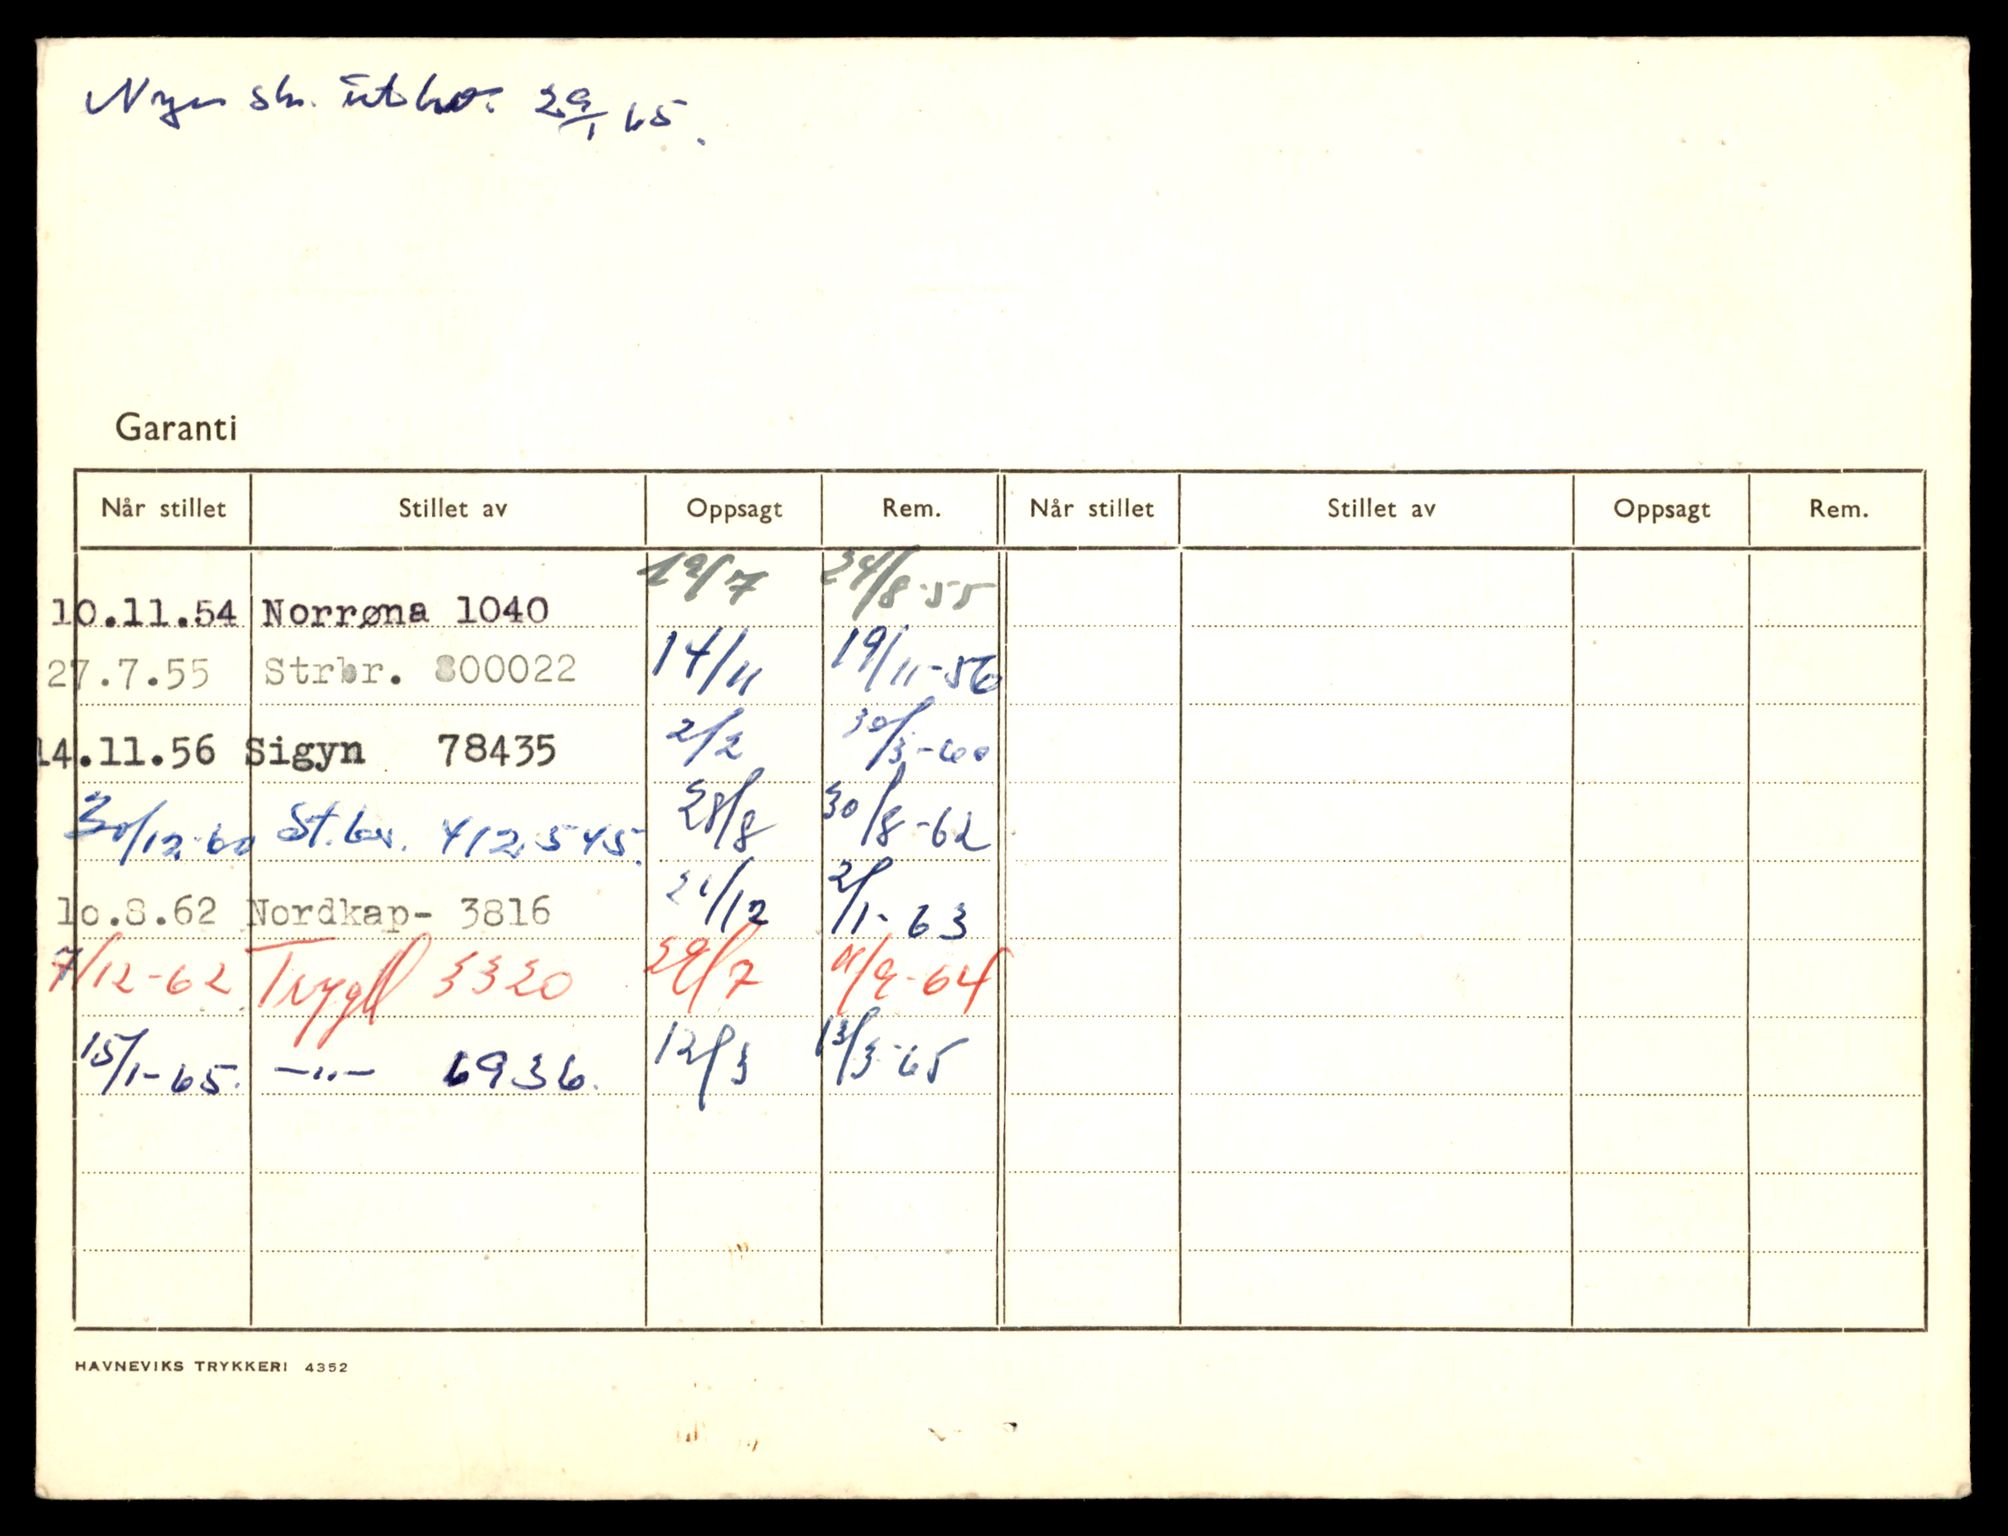 29/1 65.
Garanti
Når stillet Stillet av Oppsagt Rem. Når stillet Stillet av Oppsagt Rem.
10.11.54 Norrøna 1040 19/7 24/8-55
27.7.55 Strbr. 800022 14/11 19/11-56
14.11.56 Sigyn 78435 2/2 30/3-60
30/12-60 St.br. 412545. 28/8 30/8-62
10.8.62 Nordkap- 3816 21/12 2/1-63
7/12-62 Trygd 3320 29/7 /9-64
15/1-65. —"— 6936. 12/3 13/3-65
HAVNEVIKS TRYKKERI 4352